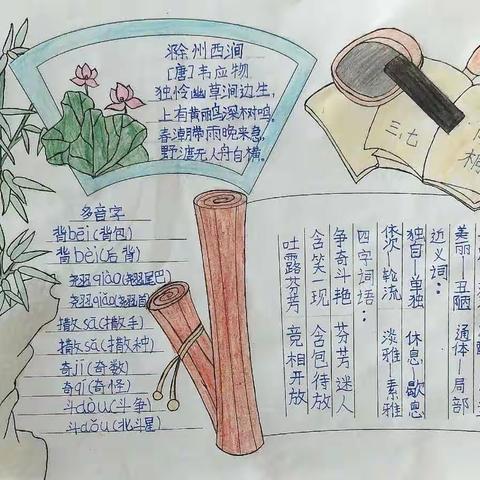 滁州西涧
[唐]韦应物
独怜幽草涧边生，
上有黄鹂深树鸣。
春潮带雨晚来急，
野渡无人舟自横。
三，七
相
多音字
背bēi(背包)
背bèi(后背)
翘qiào(翘尾巴)
翘qiáo(翘首)
撒sā(撒手)
撒sǎ(撒种)
奇jī(奇数)
奇qí(奇怪)
斗dòu(斗争)
斗dǒu(北斗星)
美丽—丑陋 通体—局部
近义词：
独自—单独 休息—歇息
依次—轮流 淡雅—素雅
四字词语：
争奇斗艳 芬芳迷人
含笑一现 含包待放
吐露芬芳 竞相开放